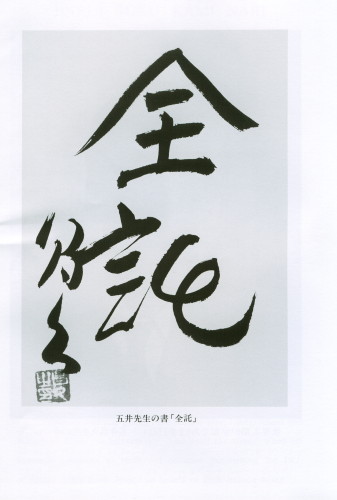 全
託
五井先生の書「全託」